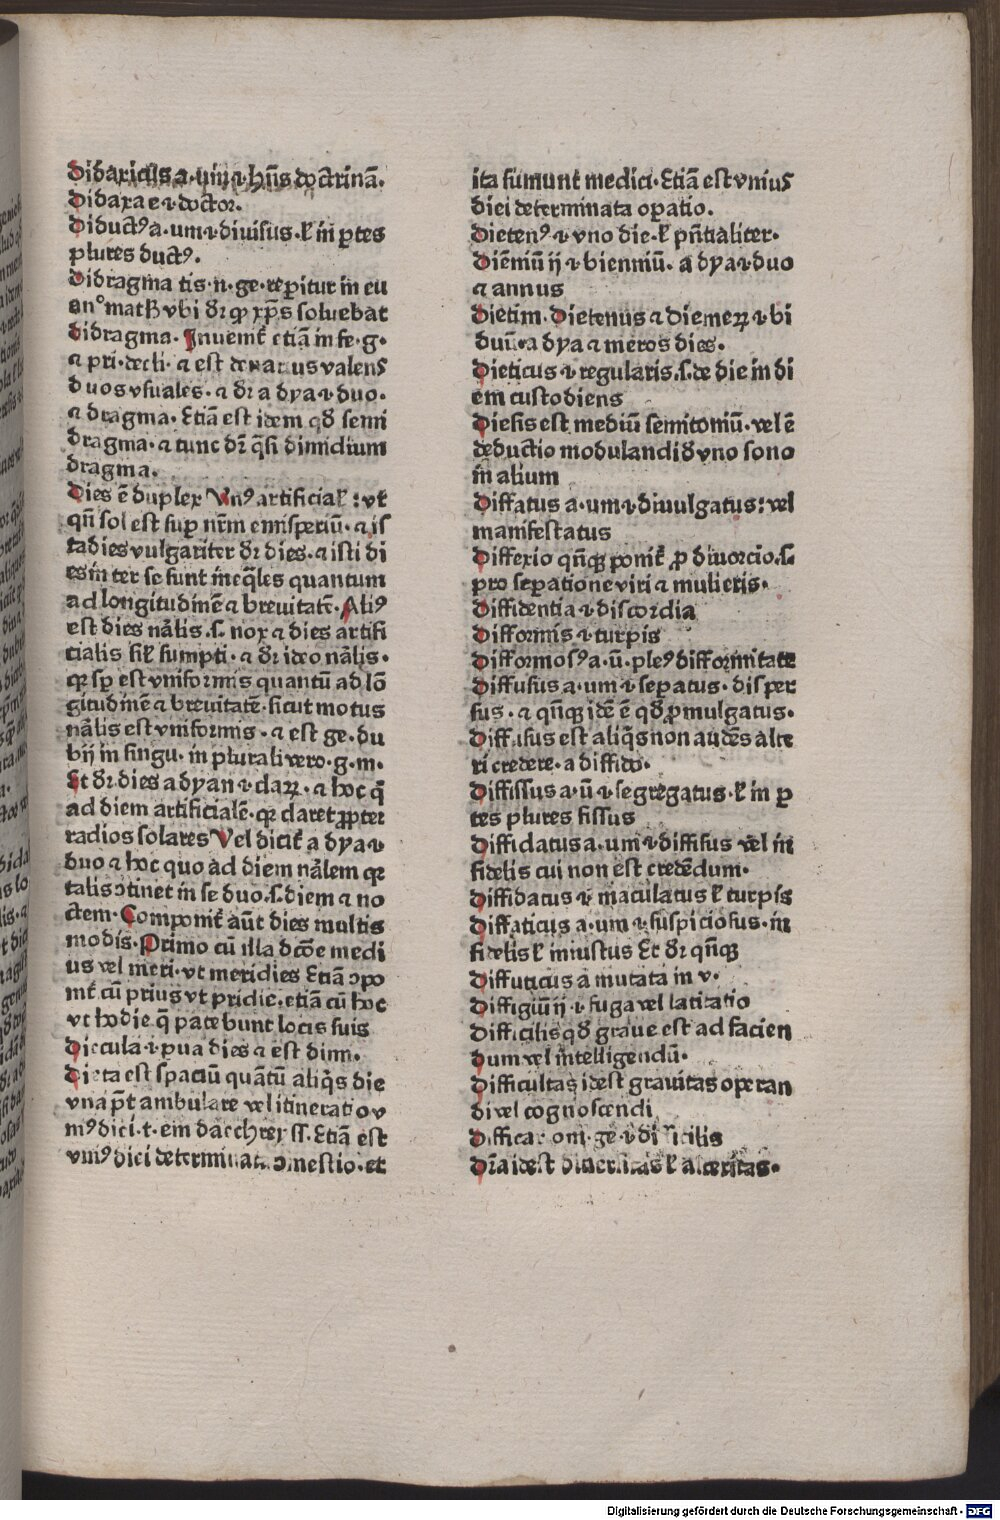 Didaxicus a·um·i·hñs doctrinã·
Didaxa e·i·doctor.
Diductꝰ a·um·i·diuisus·ł in ꝑtes
plures ductꝰ.
Didragma tis·n·ge·reꝑitur in eu
anᵒ matß vbi dr̃ ꝙ xp̃s soluebat
didragma· Inuenit̃ etiã in fe·g·
⁊ pri·decli· ⁊ est denarius valens
duos vsuales·⁊ dr̃ a dya·i·duo·
⁊ dragma· Etiã est idem qđ semi
dragma·⁊ tunc dr̃ q̃si dimidium
dragma.
Dies ẽ duplex Vnꝰ artificial̃ : vt
qñ sol est suꝑ nr̃m emisperiũ·⁊ is
ta dies vulgariter dr̃ dies·⁊ isti di
es inter se sunt ineq̃les quantum
ad longitudinẽ ⁊ breuitatẽ· Aliꝰ
est dies nãlis·s· nox ⁊ dies artifi
cialis sil̃ sumpti·⁊ dr̃ ideo nãlis·
qꝛ sꝑ est vniformis quantũ ad lõ
gitudinẽ ⁊ breuitatẽ·sicut motus
nãlis est vniformis·⁊ est ge·du
bij in singu·in plurali vero·g·m·
Et dr̃ dies a dyan·i·claꝝ·⁊ hoc q̃
ad diem artificialẽ·qꝛ claret ꝓpter
radios solares Vel dicit̃ a dya·i·
duo ⁊ hoc quo ad diem nãlem qꝛ
talis ↄtinet in se duo·s·diem ⁊ no
ctem· Componit̃ aũt dies multis
modis· Primo cũ illa dcõe medi
us vel meri·vt meridies Etiã ↄpo
nit̃ cũ prius vt pridie·etiã cũ hoc
vt hodie q̃ patebunt locis suis
Diecula·i·ꝑua dies ⁊ est dim·
Dieta est spaciũ quãtũ aliq̃s die
vna põt ambulare vel itineratio v
niꝰ diei·
vniꝰ diei determinata ↄmestio·et
ita sumunt̃ medici· Etiã est vnius
diei determinata oꝑatio.
Dietenꝰ·i·vno die·ł pñtialiter·
Diẽniũ ij·i·bienniũ· a dya·i·duo
⁊ annus
Dietim· Dietenus ⁊ diemeꝝ·i·bi
duũ·a dya ⁊ meros dies·
Dieticus·i·regularis·s·de die in di
em custodiens
Diesis est mediũ semitoniũ·vel ẽ
deductio modulandi đ vno sono
in alium
Diffatus a·um·i·diuulgatus: vel
manifestatus
Diffexio qñqꝫ ponit̃ ꝓ diuorcio·s·
pro seꝑatione viri ⁊ mulieris·
Diffidentia·i·discordia
Difformis·i·turpis
Difformosꝰ a·ũ·pleꝰ difformitate
Diffusus a·um·i·seꝑatus·disper
sus·⁊ qñqꝫ idẽ ẽ qđ ꝓmulgatus·
Diffisus est aliq̃s non audẽs alte
ri credere·a diffido·
Diffissus a·ũ·i·segregatus·ł in ꝑ
tes plures fissus
Diffidatus a·um·i·diffisus vel in
fidelis cui non est credẽdum·
Diffidatus·i·maculatus ł turpis
Diffaticus a·um·i·suspiciosus·in
fidelis ł iniustus Et dr̃ qñqꝫ
Diffuticus a mutata in v·
Diffigiũ ij·i·fuga vel latitatio
Difficilis qđ graue est ad facien
dum vel intelligendũ·
Difficultas idest grauitas operan
di vel cognoscendi
Difficax om·ge·i·difficilis
Dr̃a idest diuersitas ł alteritas·
Digitalisierung gefördert durch die Deutsche Forschungsgemeinschaft - DFG